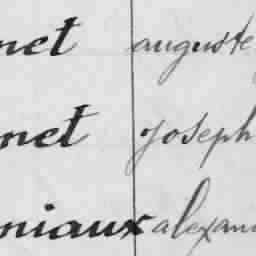 net auguste
net Joseph
niaux alexan